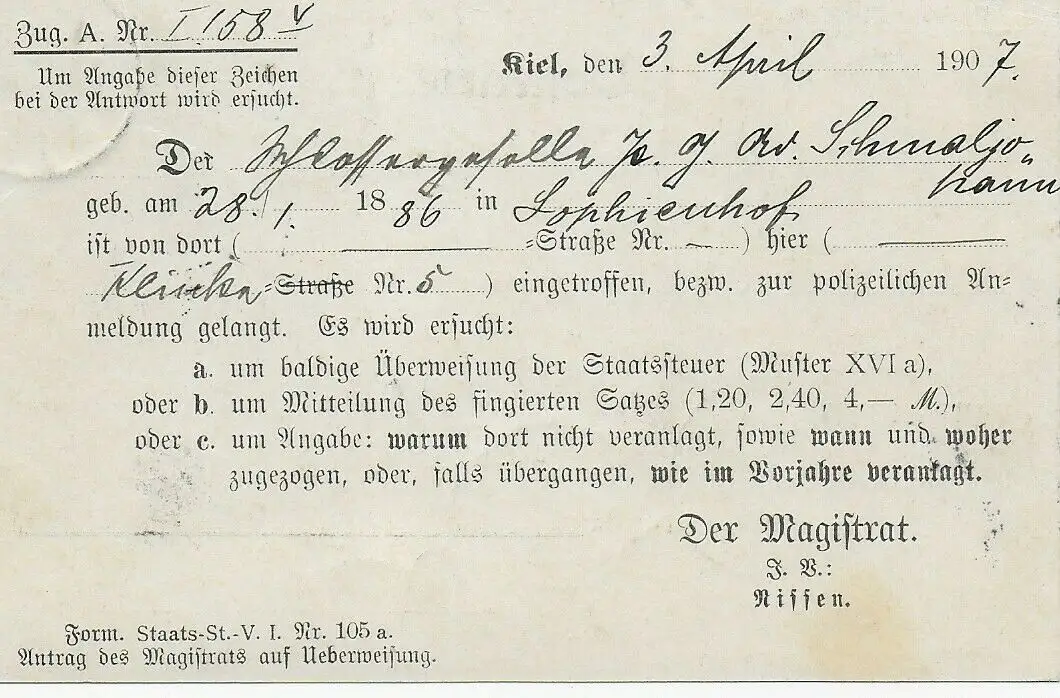 Zug. A. Nr. I 158 V
Um Angabe dieser Zeichen
bei der Antwort wird ersucht.
Kiel, den 3. April 1907.
Der Schlossergeselle P. J. Ad. Schmaljo-
hann
geb. am 28. 1. 1886 in Sophienhof
ist von dort ( -Straße Nr. — ) hier (
-Straße Nr. 5 ) eingetroffen, bezw. zur polizeilichen An-
meldung gelangt. Es wird ersucht:
a. um baldige Überweisung der Staatssteuer (Muster XVI a),
oder b. um Mitteilung des fingierten Satzes (1,20, 2,40, 4,— M.),
oder c. um Angabe: warum dort nicht veranlagt, sowie wann und woher
zugezogen, oder, falls übergangen, wie im Vorjahre veranlagt.
Der Magistrat.
J. V.:
Nissen.
Form. Staats-St.-V. I. Nr. 105 a.
Antrag des Magistrats auf Ueberweisung.